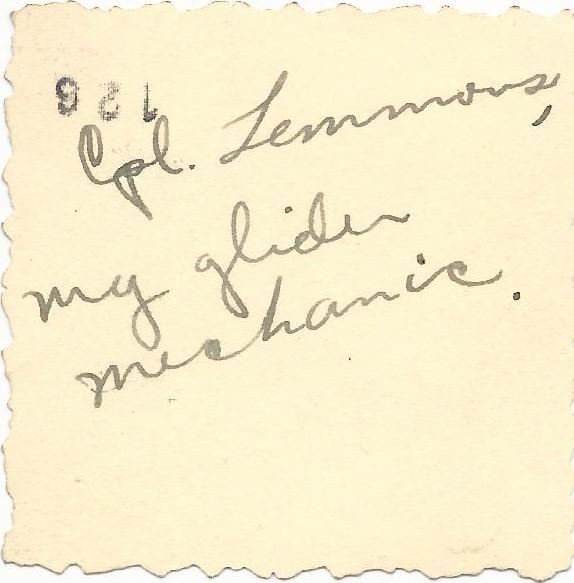 126
Cpl. Lemmons,
my glider
mechanic.